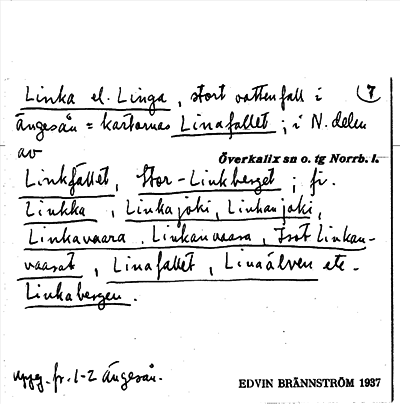 Linka el. Linga, stort vattenfall i 7
Ängesån = kartornas Linafallet; i N. delen
av
Överkalix sn o. tg Norrb. l.
Linkfallet, Stor-Linkberget; fi.
Linkka, Linkajoki, Linkanjoki,
Linkavaara, Linkanvaara, Isot Linkan-
vaarat, Linafallet, Linaälven etc.
Linkabergen.
uppg. fr. 1-2 Ängesån.
EDVIN BRÄNNSTRÖM 1937